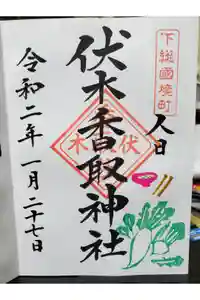 下総國境町
人日
伏木香取神社
伏木
令和二年一月二十七日